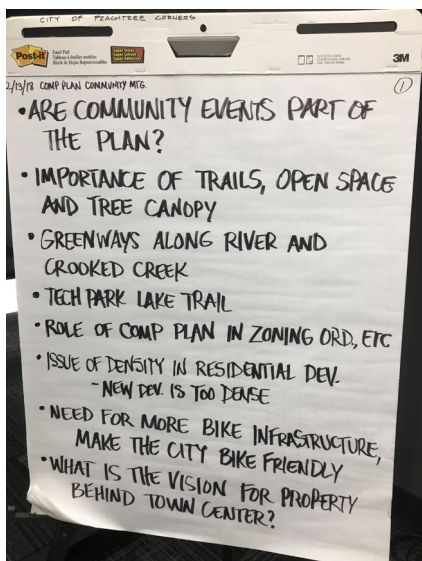 CITY OF PEACHTREE CORNERS
Post-it
Easel Pad
Super Sticky
3M
2/13/18 COMP PLAN COMMUNITY MTG.
①
• ARE COMMUNITY EVENTS PART OF
THE PLAN?
• IMPORTANCE OF TRAILS, OPEN SPACE
AND TREE CANOPY
• GREENWAYS ALONG RIVER AND
CROOKED CREEK
• TECH PARK LAKE TRAIL
• ROLE OF COMP PLAN IN ZONING ORD., ETC
• ISSUE OF DENSITY IN RESIDENTIAL DEV.
- NEW DEV. IS TOO DENSE
• NEED FOR MORE BIKE INFRASTRUCTURE,
MAKE THE CITY BIKE FRIENDLY
• WHAT IS THE VISION FOR PROPERTY
BEHIND TOWN CENTER?